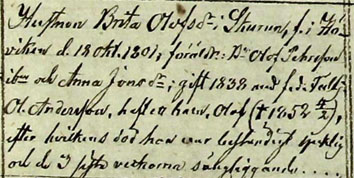 Hustrun Brita Olofsdr i Sturun, f. i Hå-
viken d. 18 Okt. 1801, föräldr: Dr Olof Pehrsson
ibm och Anna Jonsdr; gift 1838 med
Ol. Andersson, Olof († 1852 4/2),
efter hvilkens död hon var beständigt sjuklig
och de 3 sista veckorna sängliggande....